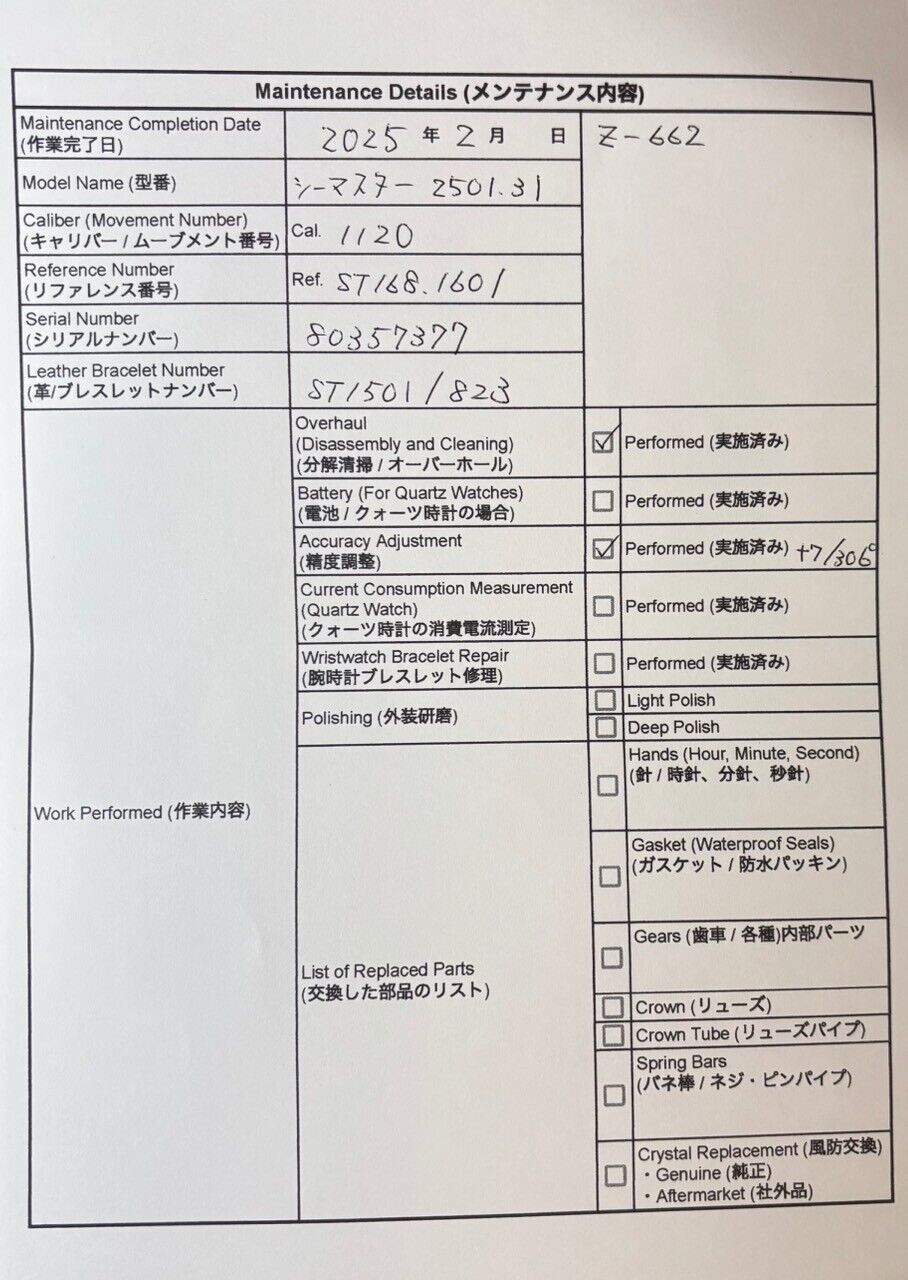 Maintenance Details (メンテナンス内容)
Maintenance Completion Date
(作業完了日)
2025 年 2 月 日
Z-662
Model Name (型番)
シーマスター 2501.31
Caliber (Movement Number)
(キャリバー / ムーブメント番号)
Cal. 1120
Reference Number
(リファレンス番号)
Ref. ST168.1601
Serial Number
(シリアルナンバー)
80357377
Leather Bracelet Number
(革/ブレスレットナンバー)
ST1501/823
Work Performed (作業内容)
Overhaul
(Disassembly and Cleaning)
(分解清掃 / オーバーホール)
Performed (実施済み)
Battery (For Quartz Watches)
(電池 / クォーツ時計の場合)
Performed (実施済み)
Accuracy Adjustment
(精度調整)
Performed (実施済み) +7/306°
Current Consumption Measurement
(Quartz Watch)
(クォーツ時計の消費電流測定)
Performed (実施済み)
Wristwatch Bracelet Repair
(腕時計ブレスレット修理)
Performed (実施済み)
Polishing (外装研磨)
Light Polish
Deep Polish
List of Replaced Parts
(交換した部品のリスト)
Hands (Hour, Minute, Second)
(針 / 時針、分針、秒針)
Gasket (Waterproof Seals)
(ガスケット / 防水パッキン)
Gears (歯車 / 各種)内部パーツ
Crown (リューズ)
Crown Tube (リューズパイプ)
Spring Bars
(バネ棒 / ネジ・ピンパイプ)
Crystal Replacement (風防交換)
・Genuine (純正)
・Aftermarket (社外品)